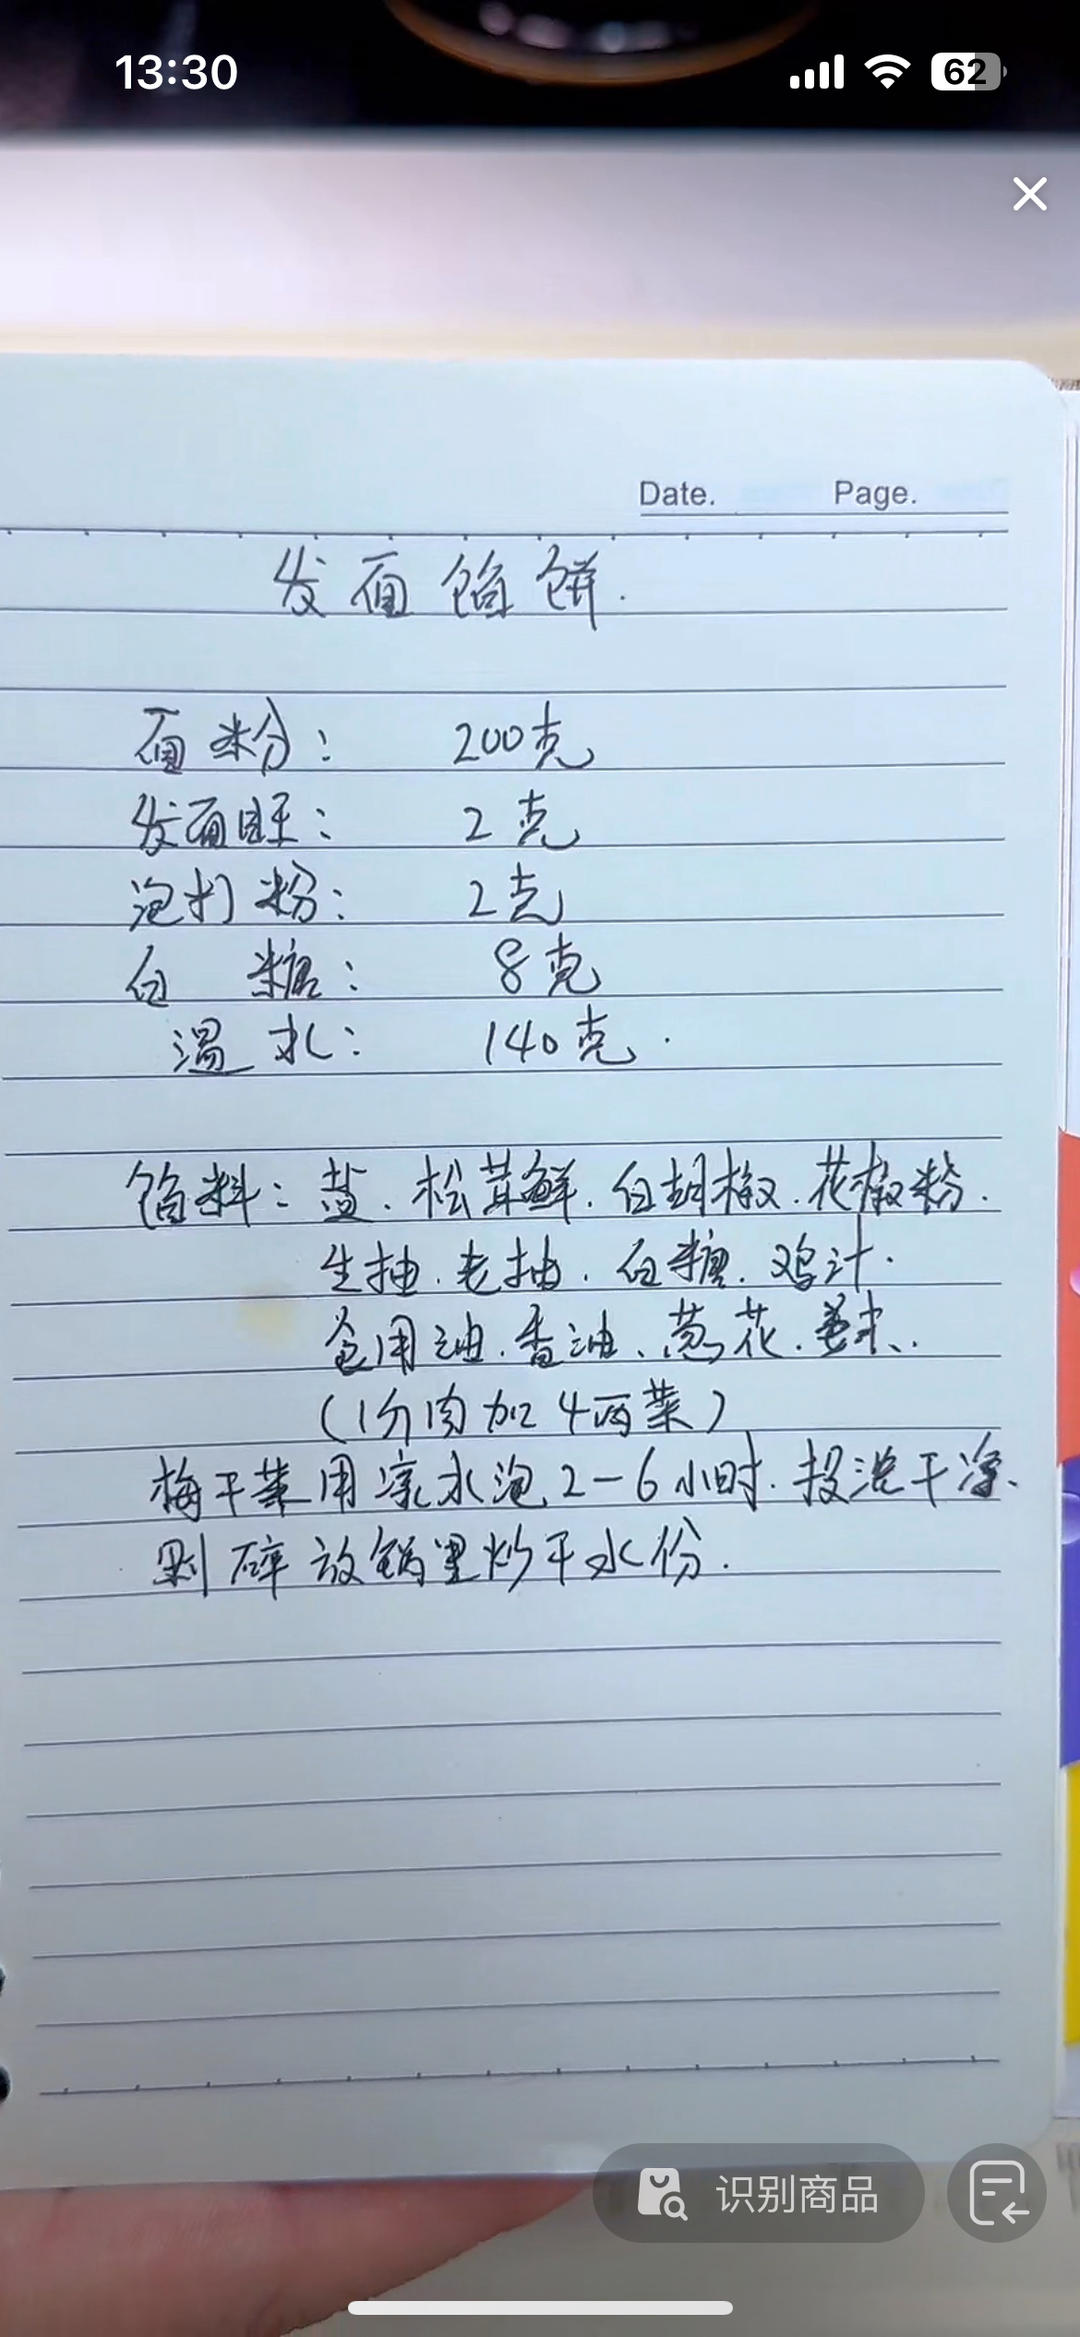 13:30
62
Date. Page.
发面馅饼.
面粉: 200克
发面旺: 2克
泡打粉: 2克
白糖: 8克
温水: 140克.
馅料: 盐. 松茸鲜. 白胡椒. 花椒粉.
生抽. 老抽. 白糖. 鸡汁.
食用油. 香油、葱花. 姜末.
(1分肉加4两菜)
梅干菜用凉水泡2-6小时. 投洗干净、
剁碎放锅里炒干水份.
识别商品